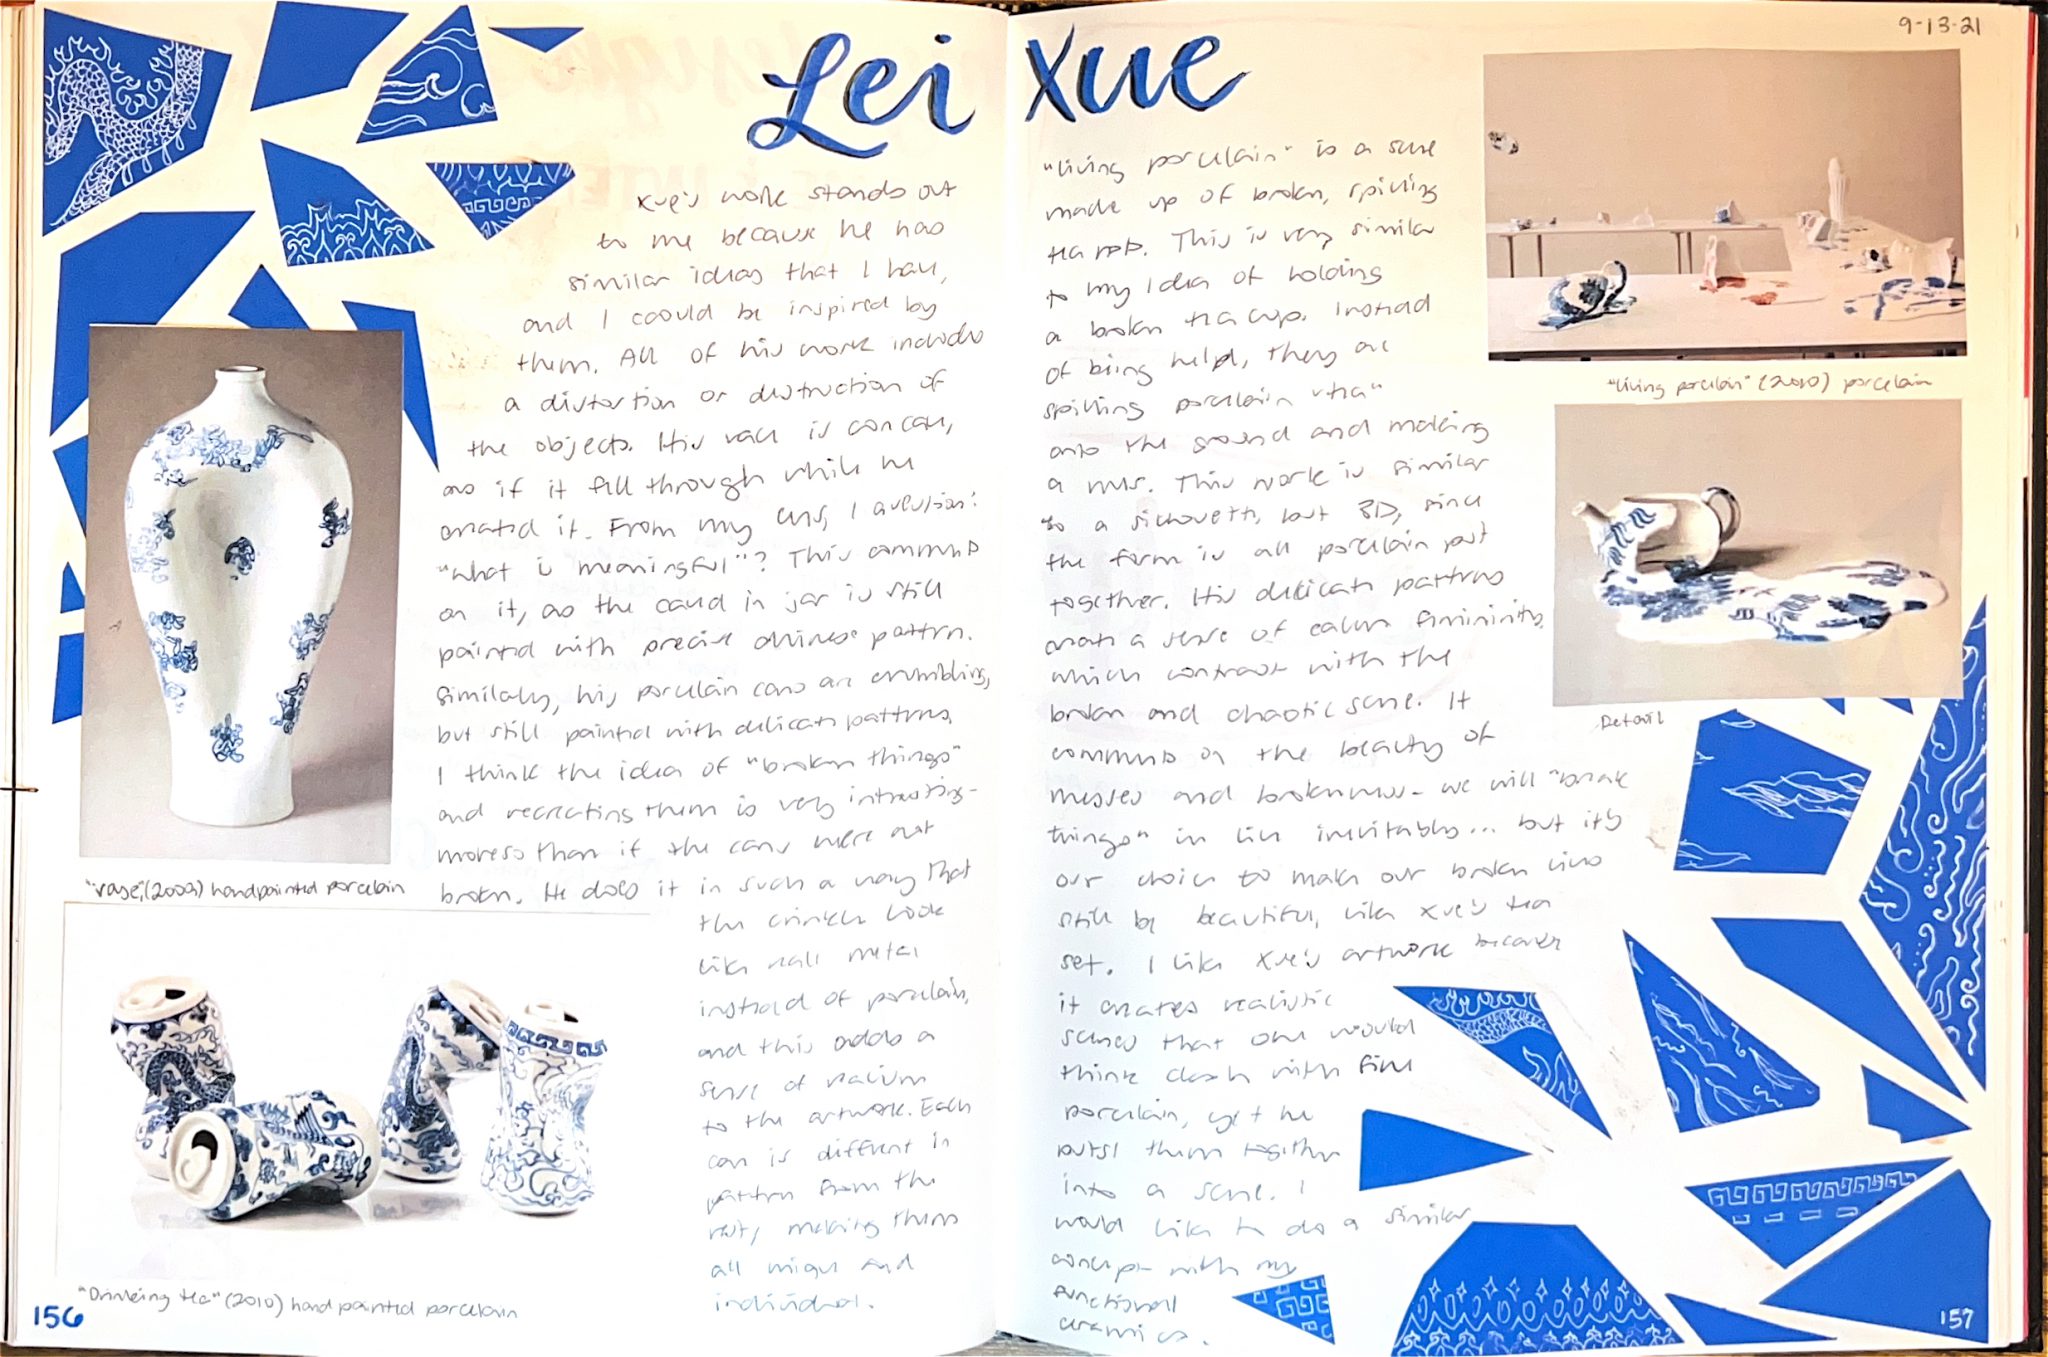 Lei Xue
9-13-21
Xue's work stands out
to me because he has
similar ideas that I have,
and I coould be inspired by
them. All of his work includes
a distortion or destruction of
the objects. His vase is concave,
as if it fell through while he
created it. From my lens, I question:
"what is meaningful"? This comments
on it, as the caved in jar is still
painted with precise chinese pattern.
Similarly, his porcelain cans are crumbling,
but still painted with delicate patterns.
I think the idea of "broken things"
and recreating them is very intresting-
moreso than if the cans were not
broken. He does it in such a way that
the crinkles look
like real metal
instead of porcelain,
and this adds a
sense of realism
to the artwork. Each
can is different in
pattern from the
rest, making them
all unique and
individual.
"vase", (2009) handpainted porcelain
"Drinking tea" (2010) hand painted porcelain
156
"living porcelain" is a scene
made up of broken, spilling
tea pots. This is very similar
to my idea of holding
a broken tea cup. Instead
of being held, they are
spilling porcelain "tea"
onto the ground and making
a mess. This work is similar
to a silhouette, but 3D, since
the form is all porcelain put
together. His delicate patterns
create a sense of calm femininity,
which contrast with the
broken and chaotic scene. It
comments on the beauty of
messes and brokenness- we will "break
things" in life inevitably... but it's
our choice to make our broken lives
still be beautiful, like Xue's tea
set. I like Xue's artwork because
it creates realistic
scenes that one would
think clash with fine
porcelain, yet he
puts them together
into a scene. I
would like to do a similar
concept with my
functional
ceramics.
"living porcelain" (2010) porcelain
Detail
157